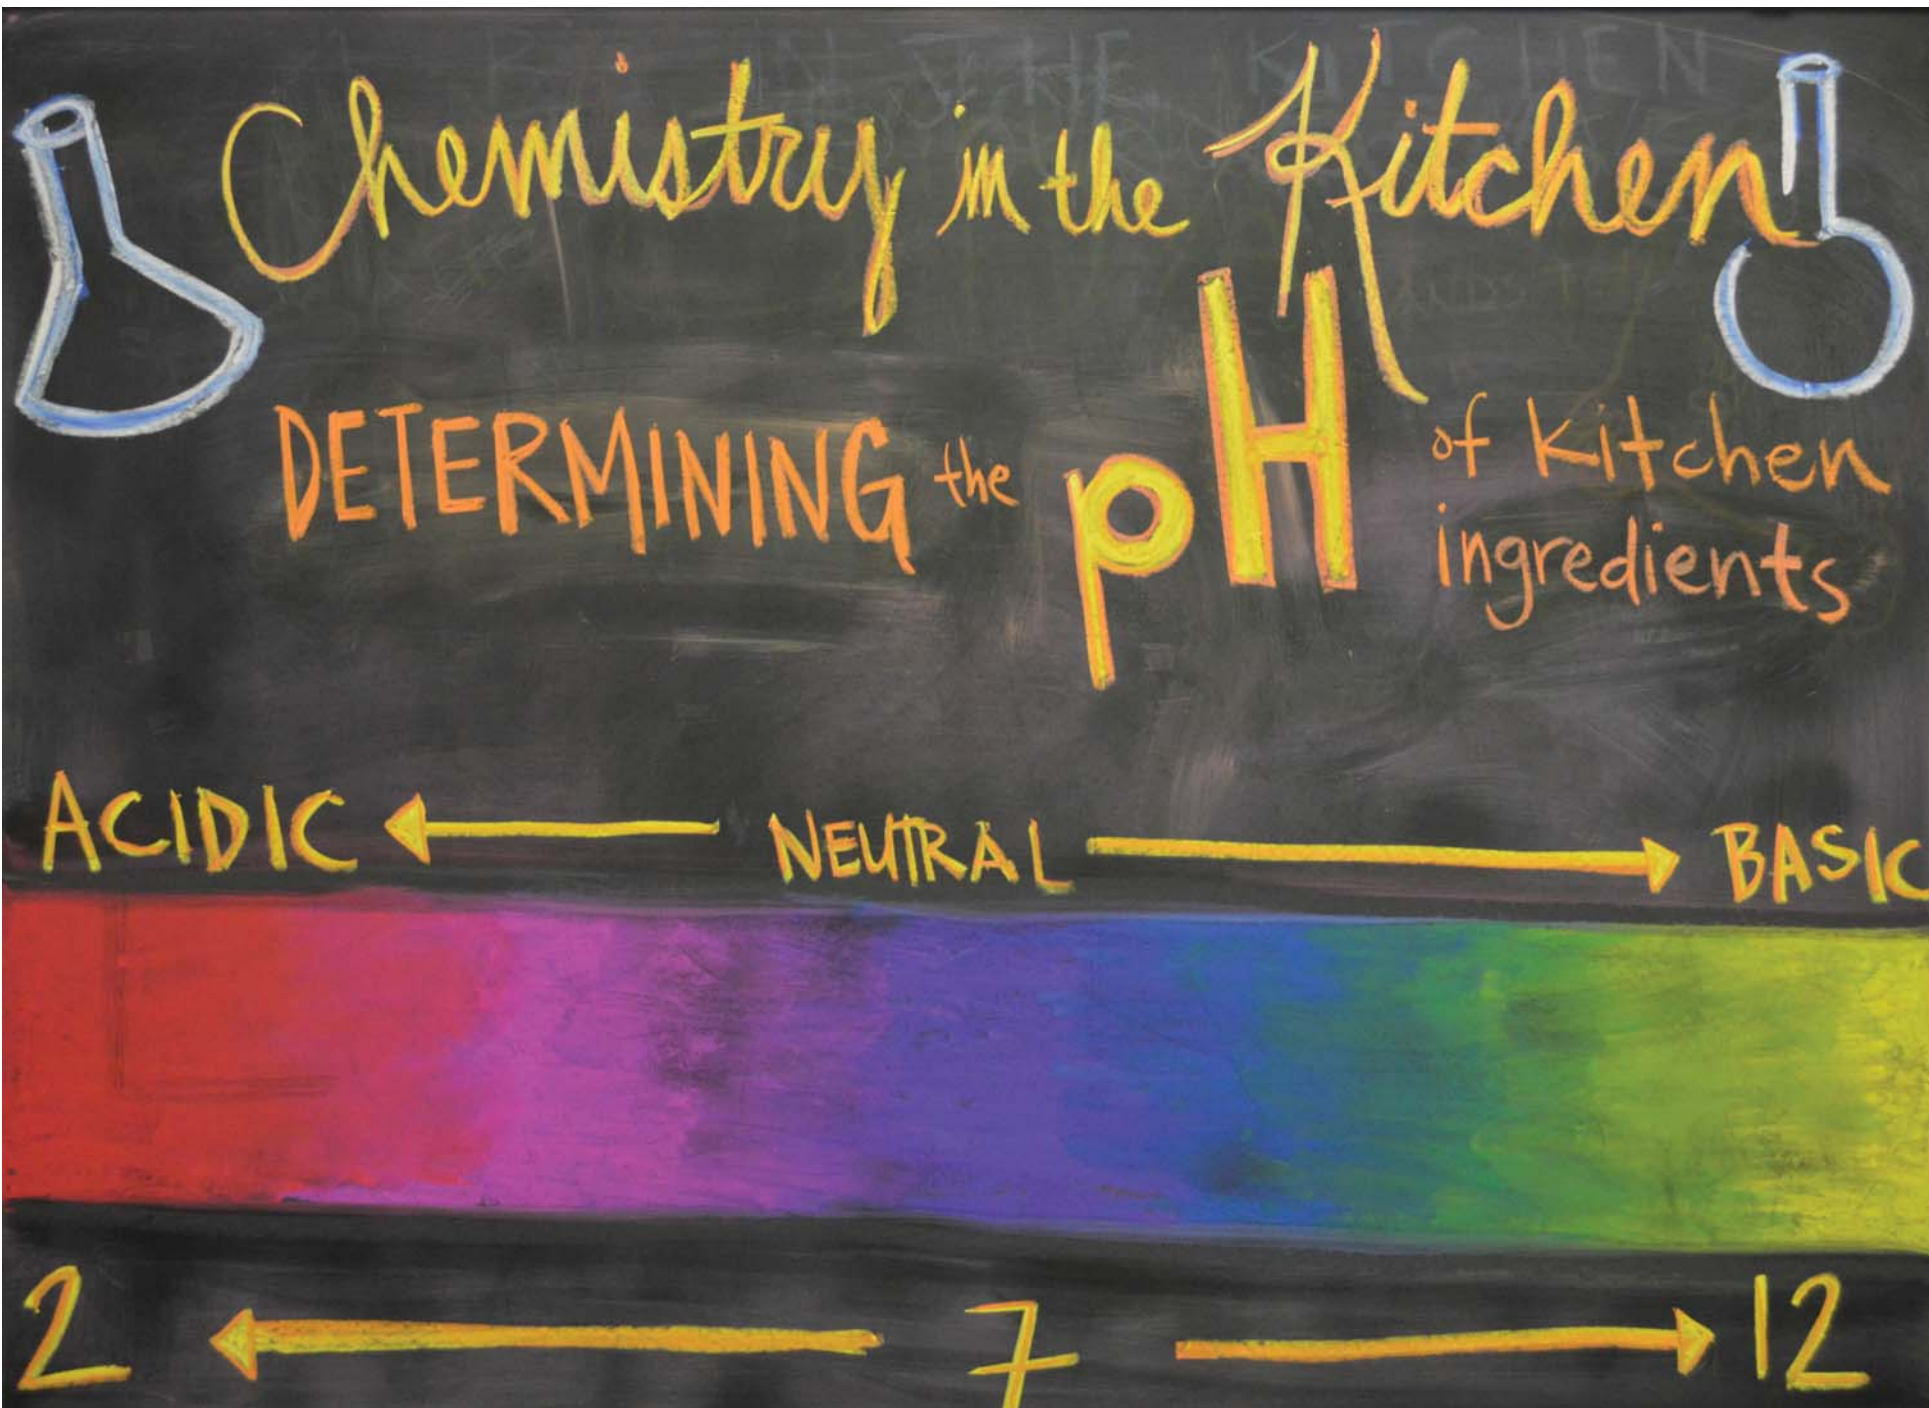 Chemistry in the Kitchen
DETERMINING the pH of kitchen
ingredients
ACIDIC NEUTRAL BASIC
2 7 12